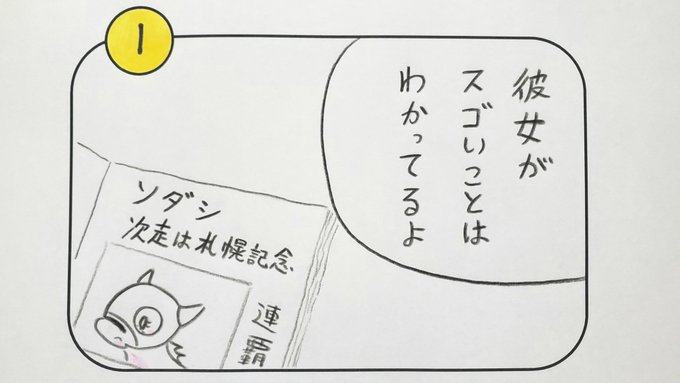 1
彼女が
スゴいことは
わかってるよ
ソダシ
次走は札幌記念
連覇